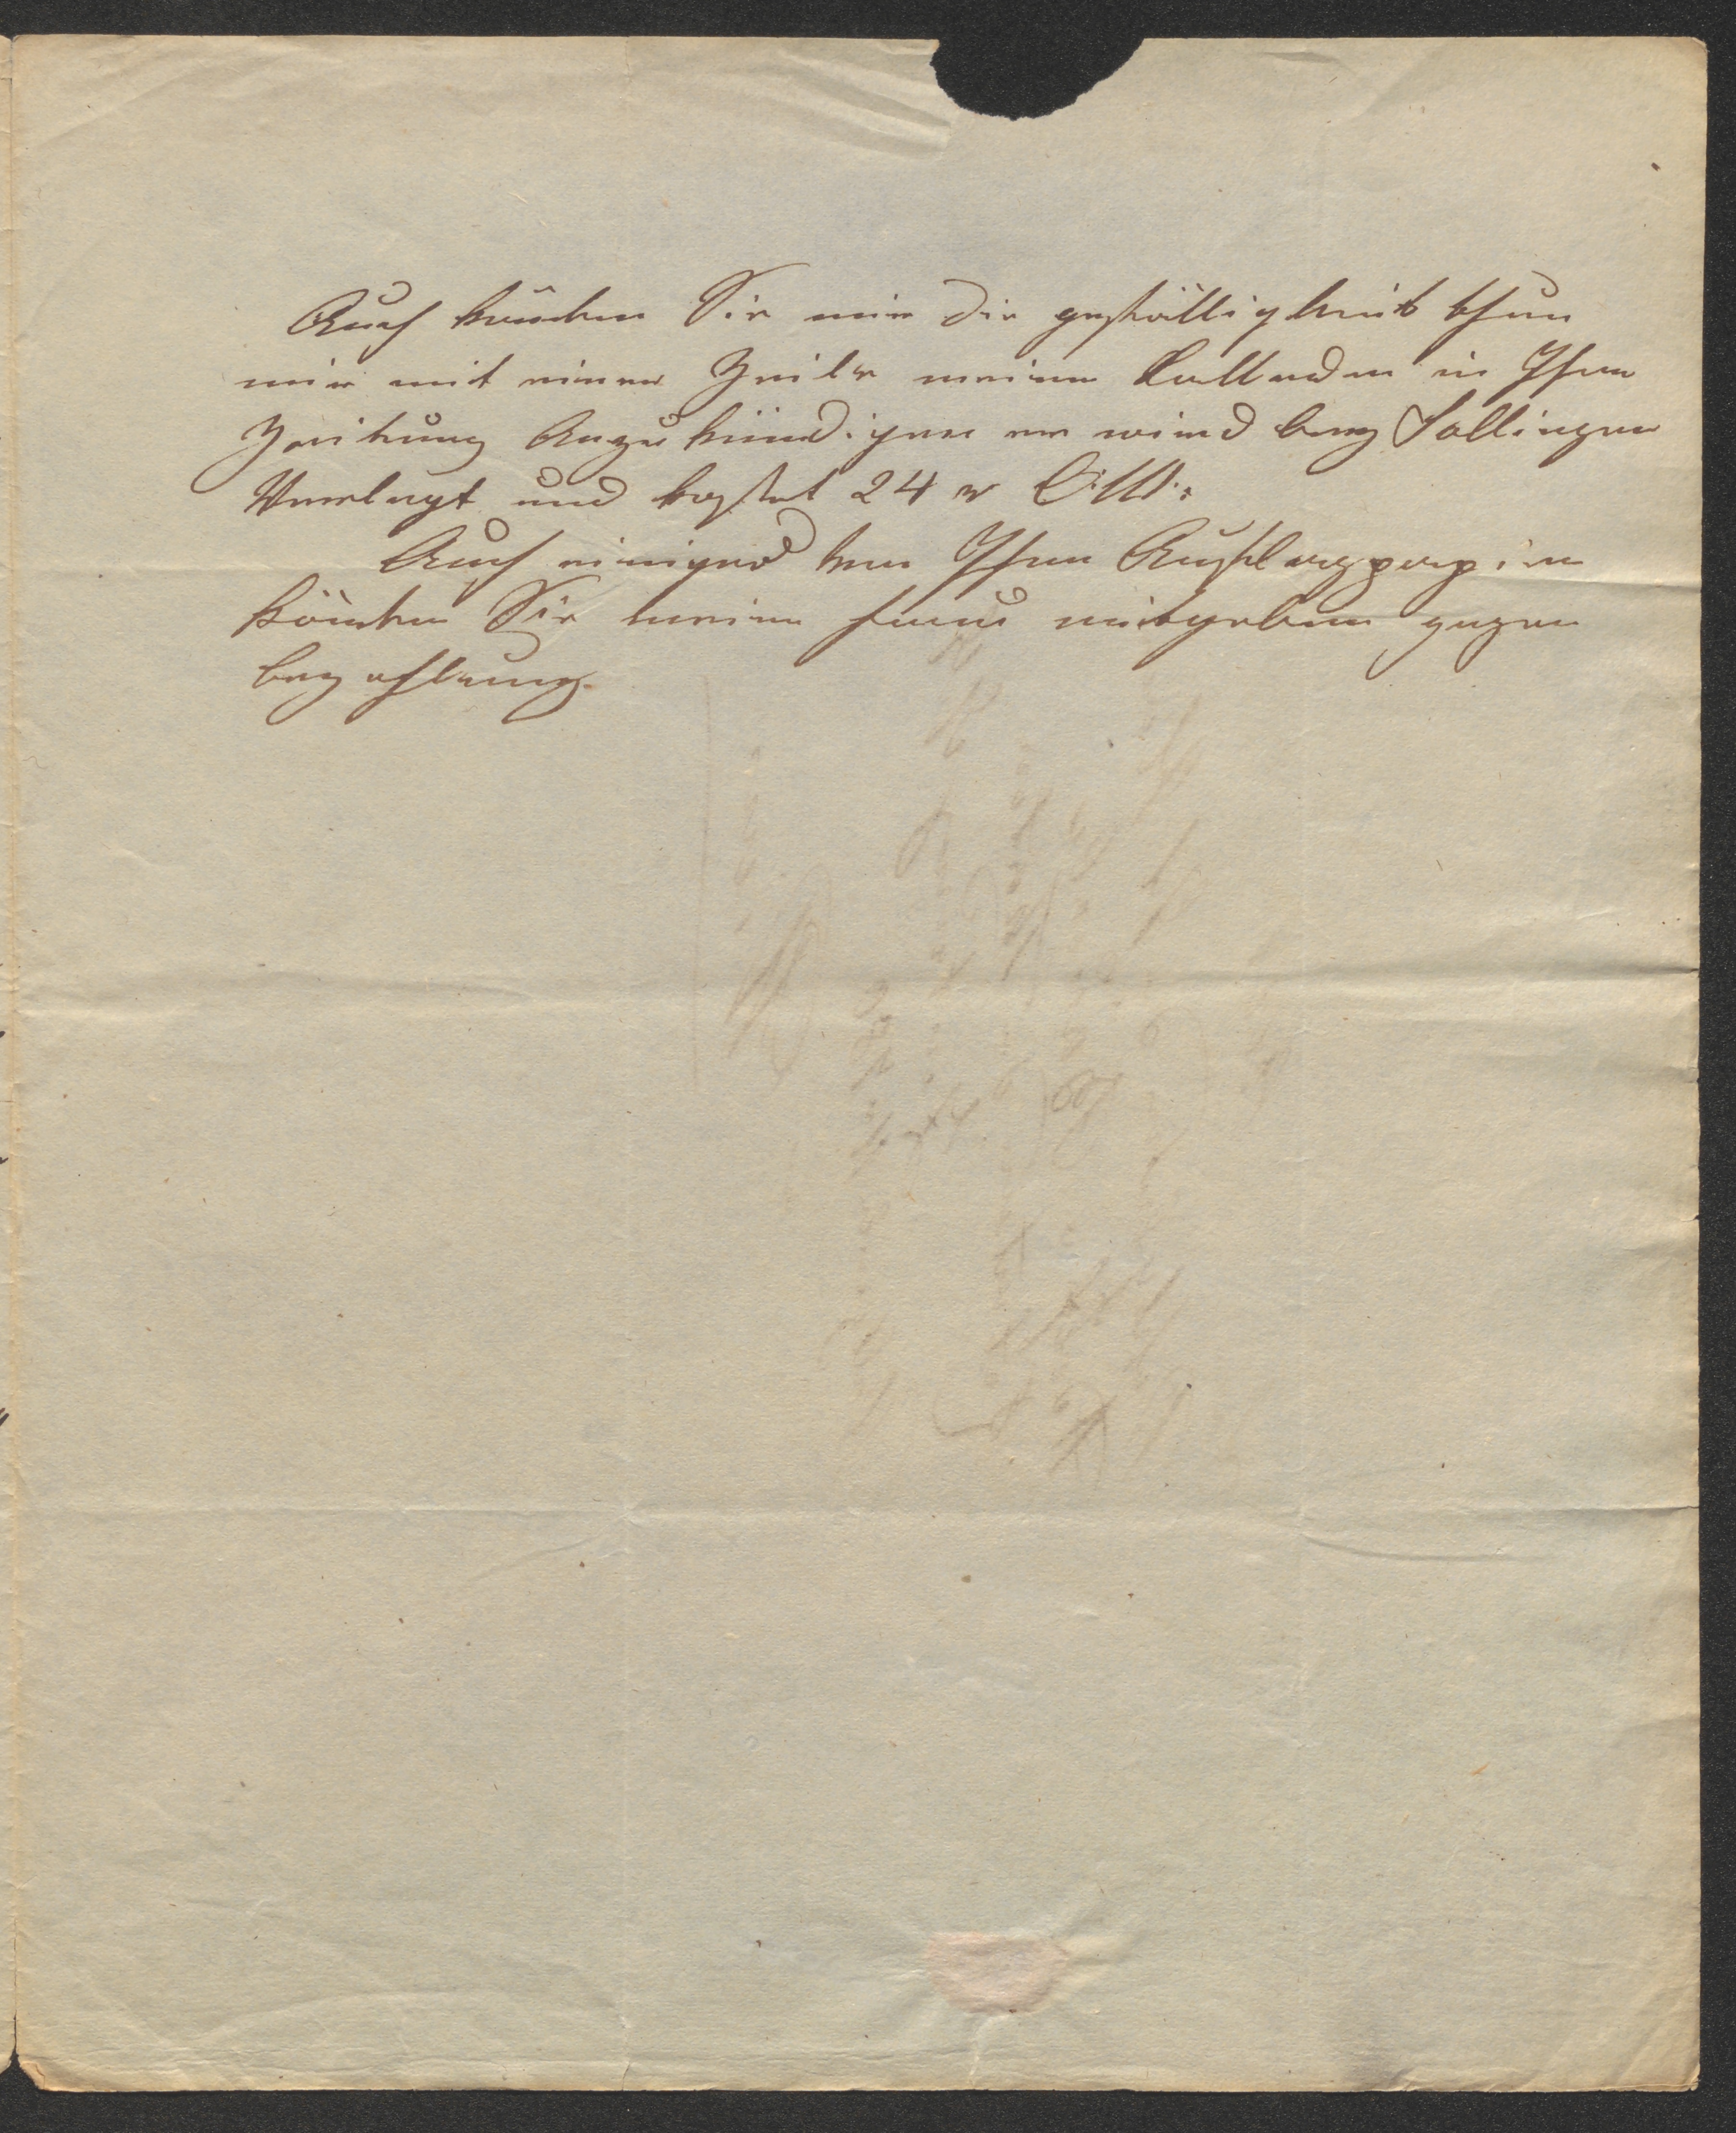 Auch könten Sie mir die gefälligkeit thun
mir mit einer Zeile meinen Callender in Ihrer
Zeitung Anzukündigen er wird bey Sollinger
Verlegt und kostet 24 x C:M:
Auch einiges von Ihren Auflegpapier
könten Sie meiner frau mitgeben gegen
bezahlung.